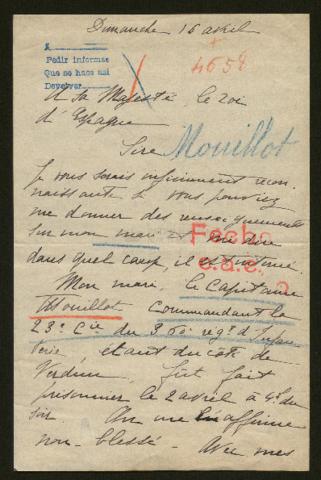 Dimanche 16 avril
+
4658
X
Pedir informes
Que se hace asi
Devolver
A sa Majesté le roi
d'Espagne
Sire
Mouillot
Je vous serais infiniment recon-
naissante si vous pouviez
me donner des renseignements
sur mon mari et me dire
Fecho
dans quel camp, il est interné.
Mon mari, le Capitaine
Mouillot Commandant la
23e Cie du 360 rég. d'Infan-
terie, étant du côté de
Verdun fut fait
prisonnier le 2 avril à 4h du
soir. On me l'affirme
non-blessé. Avec mes